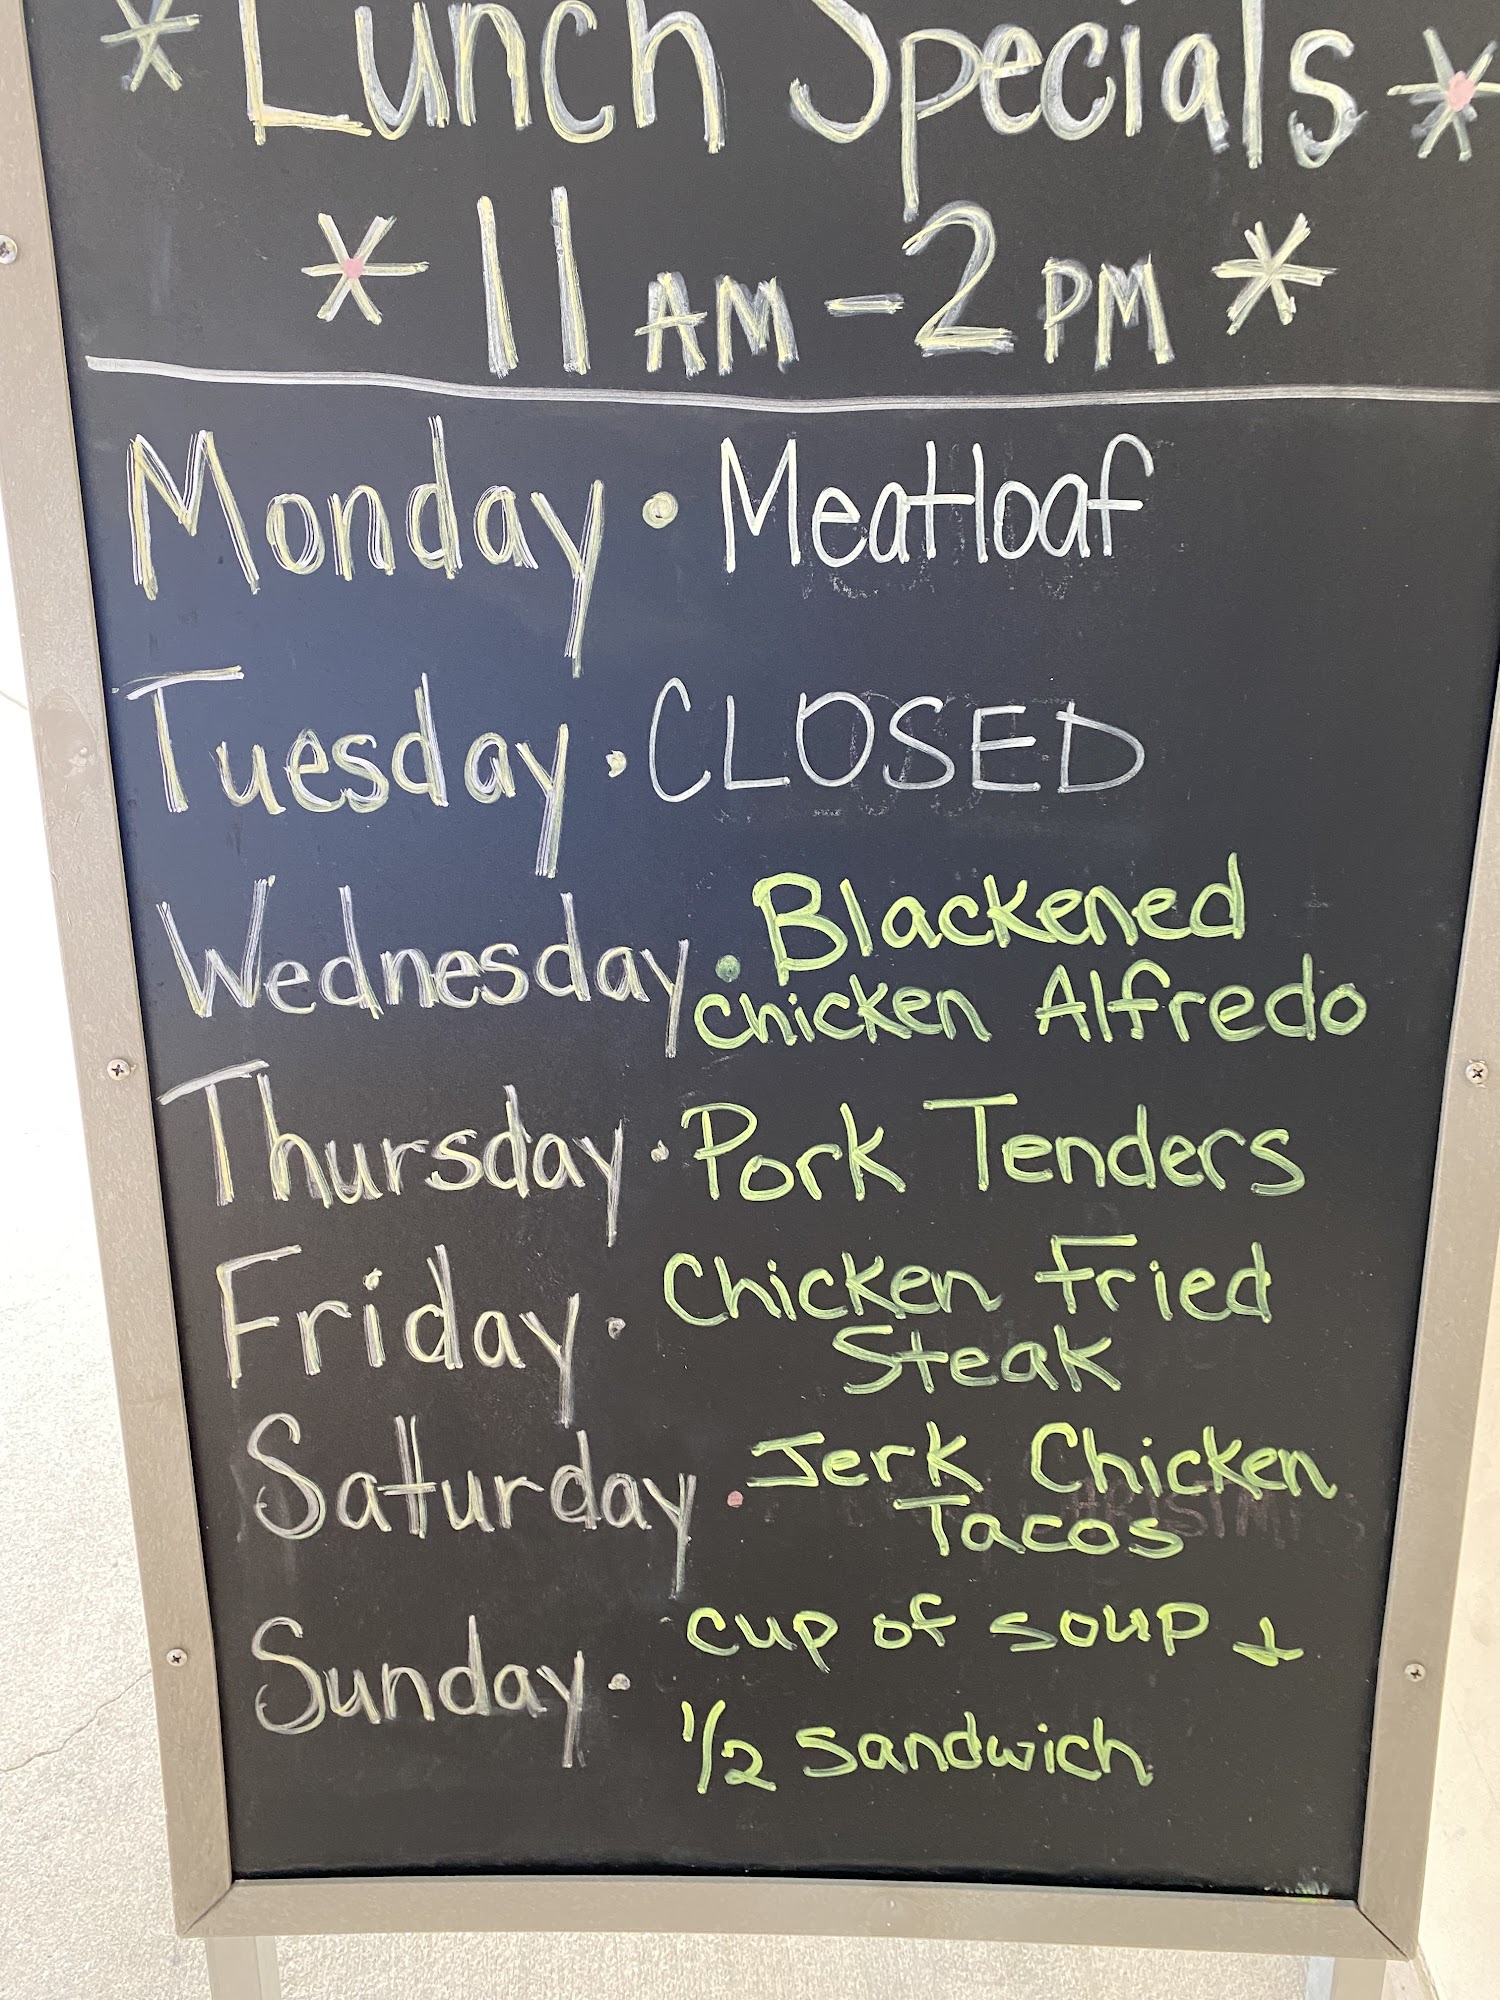 * Lunch Specials *
* 11 AM - 2 PM *
Monday • Meatloaf
Tuesday • CLOSED
Wednesday • Blackened
chicken Alfredo
Thursday • Pork Tenders
Friday • Chicken Fried
Steak
Saturday • Jerk Chicken
Tacos
Sunday • cup of soup +
1/2 sandwich